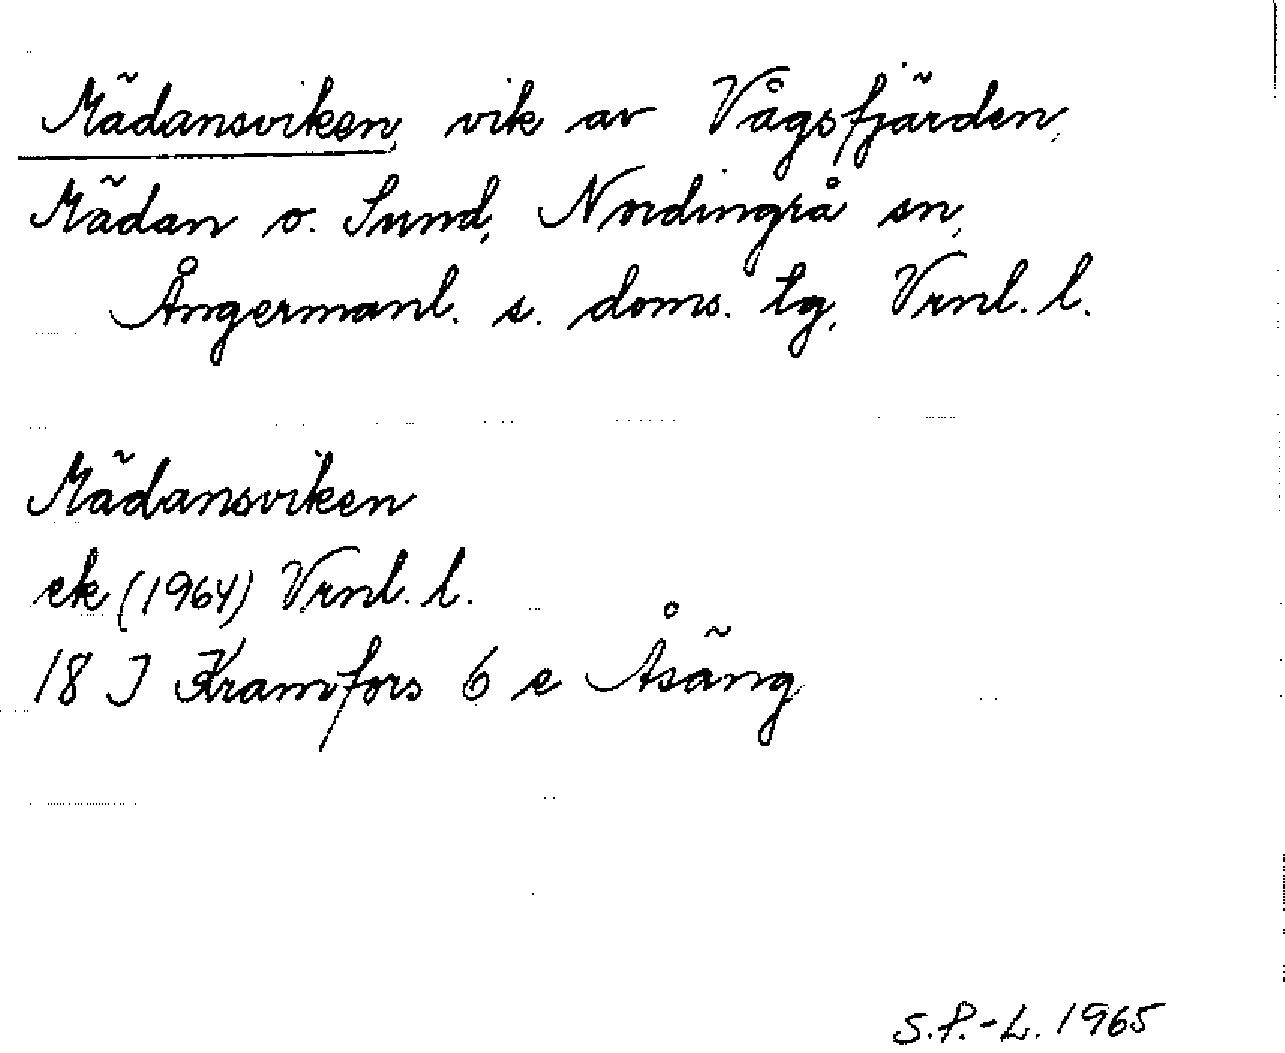 Mädansviken, vik av Vågsfjärden,
Mädan o. Sund, Nordingrå sn,
Ångermanl. s. doms. tg, Vrnl. l.
Mädansviken
ek (1964) Vrnl. l.
18 J Kramfors 6 e Åsäng
S.P.-L. 1965